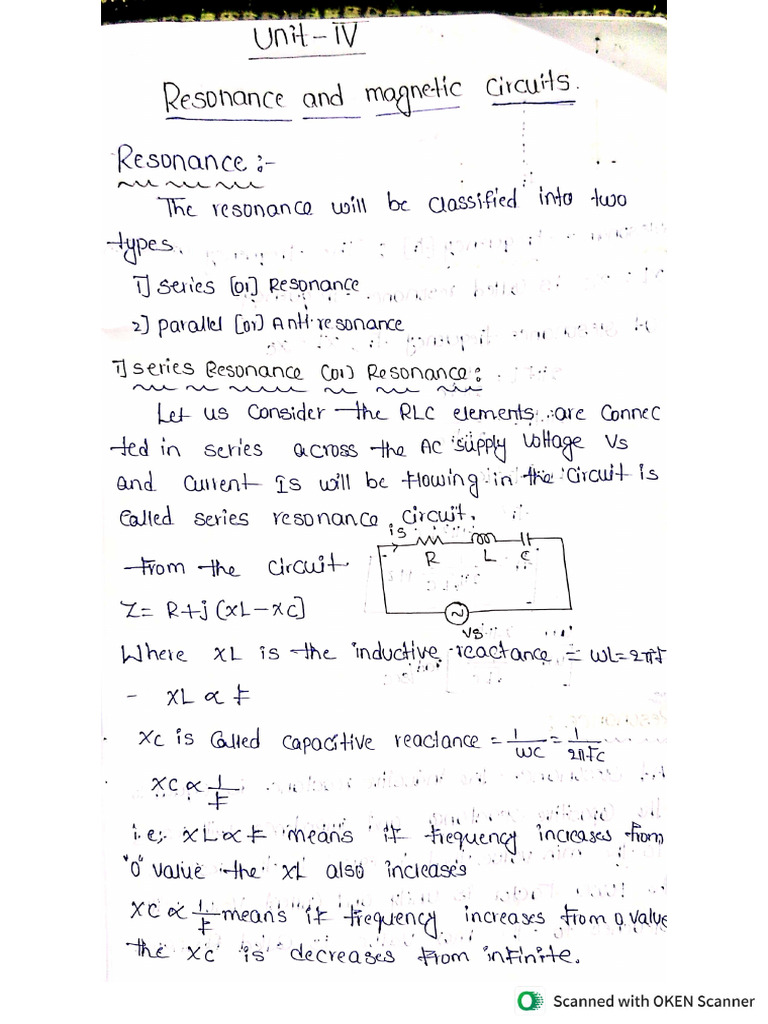 Unit-IV
Resonance and magnetic circuits.
Resonance :-
The resonance will be classified into two
types.
1] series [or] Resonance
2] parallel [or] Anti-resonance
1] series Resonance (or) Resonance :
Let us consider the RLC elements are Connec
ted in series across the AC supply voltage Vs
and current Is will be flowing in the circuit is
called series resonance circuit.
is
R L C
From the circuit
Z = R+j (XL-XC]
Vs
Where XL is the inductive reactance = WL=2πf
- XL ∝ f
XC is called capacitive reactance = 1/WC = 1/2πfc
XC ∝ 1/f
i.e; XL ∝ f means if frequency increases from
"0" value the XL also increases
XC ∝ 1/f means if frequency increases from 0 value
the XC is decreases from infinite.
Scanned with OKEN Scanner